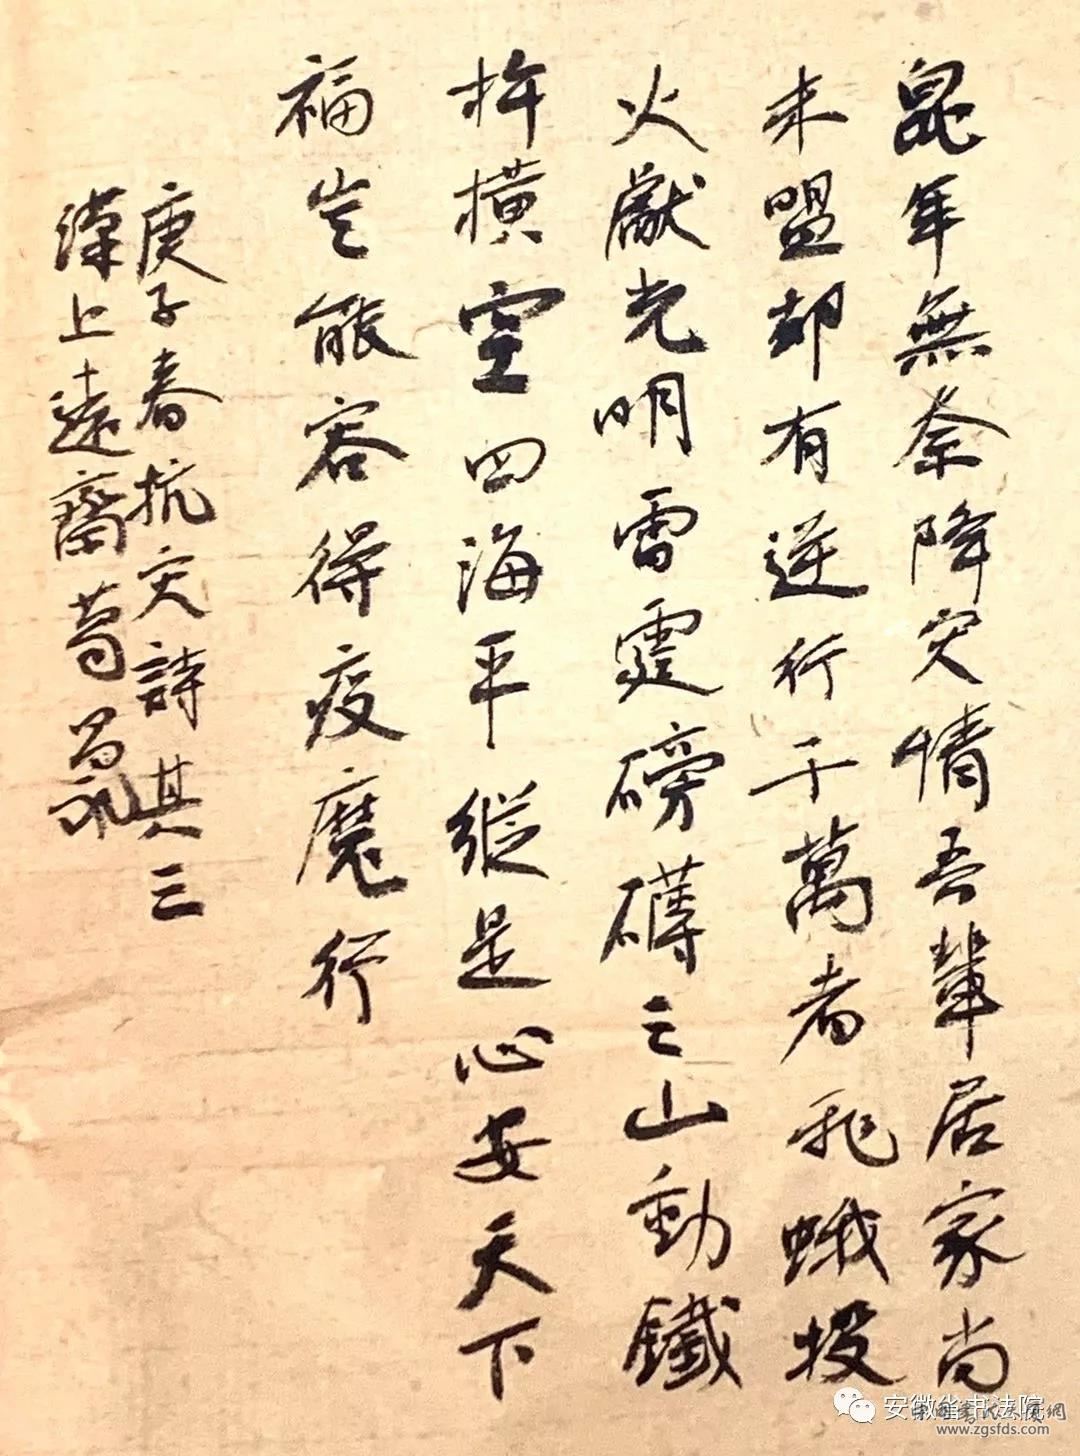 鼠年無奈降灾情吾輩居家尚
未盟却有逆行千萬者飛蛾投
火獻光明雷霆磅礴三山動鐵
杵橫空四海平縱是心安天下
福豈能容得疫魔行
庚子春抗灾詩其三
漢上遠齋葛昌永
安徽省书法院
www.zgsfds.com